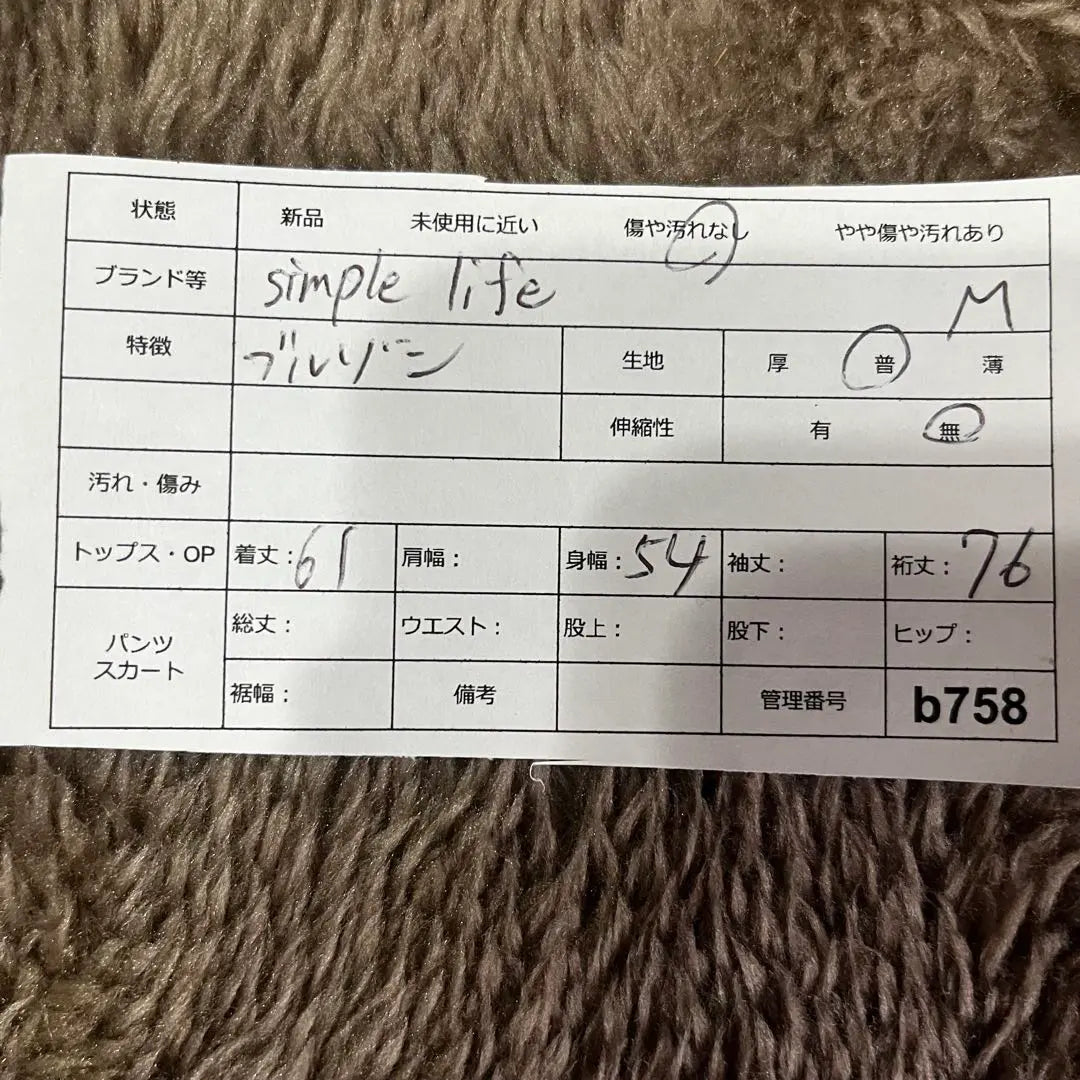 状態 新品 未使用に近い 傷や汚れなし やや傷や汚れあり
ブランド等 simple life M
特徴 ブルゾン 生地 厚 普 薄
伸縮性 有 無
汚れ・傷み
トップス・OP 着丈：61 肩幅： 身幅：54 袖丈： 裄丈：76
パンツ スカート 総丈： ウエスト： 股上： 股下： ヒップ：
裾幅： 備考 管理番号 b758